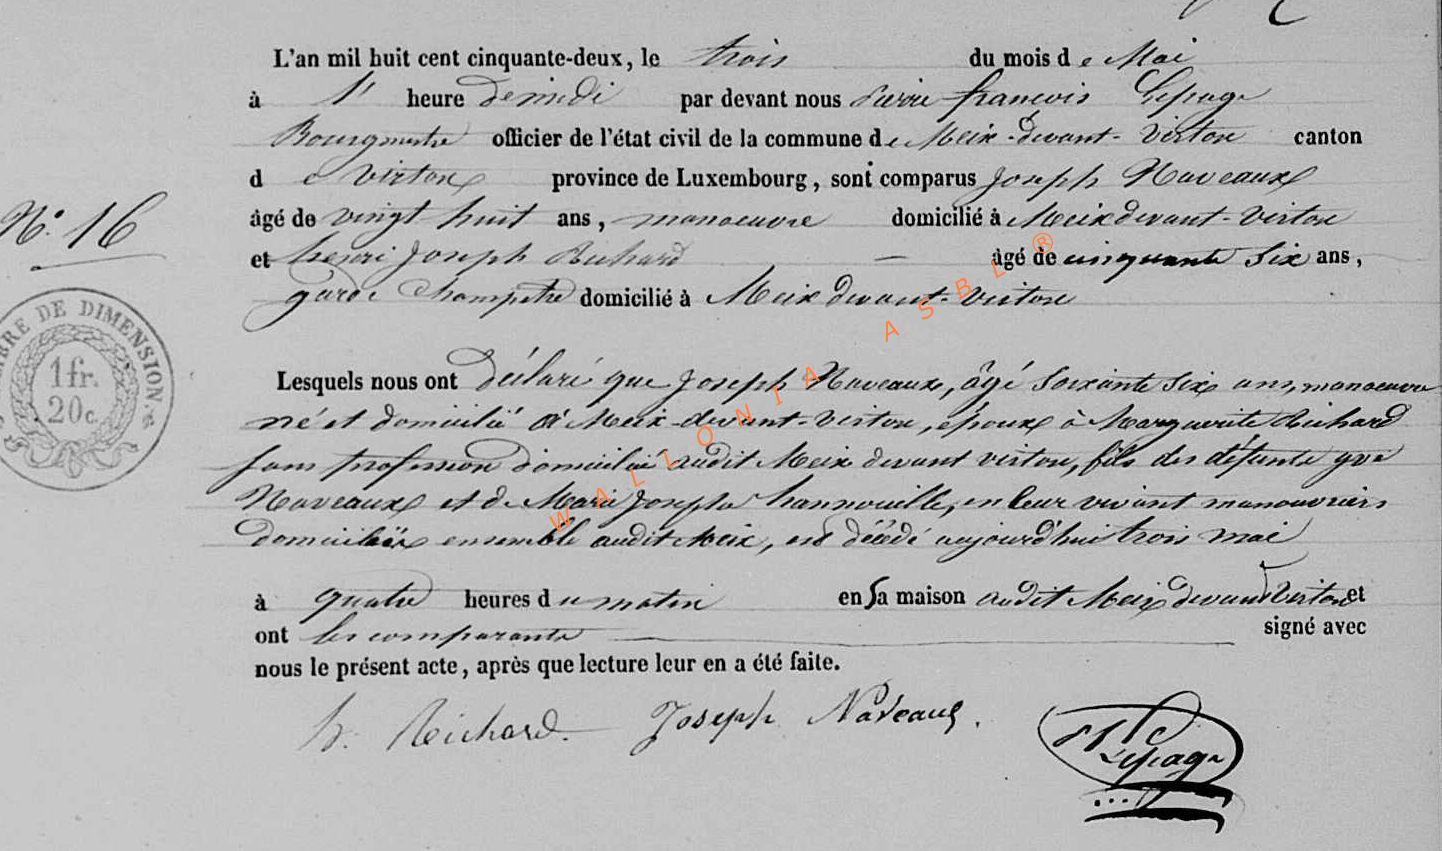 L'an mil huit cent cinquante-deux, le trois du mois de Mai
à 1 heure de midi par devant nous françois Lepage
Bourgmestre officier de l'état civil de la commune de Meix-devant-virton canton
de virton province de Luxembourg, sont comparus Joseph Naveaux
âgé de vingt huit ans, manoeuvre domicilié à Meix devant-virton
N° 16
et henri Joseph Richard âgé de cinquante six ans,
garde Champetre domicilié à Meix devant-virton
TIMBRE DE DIMENSION
1 fr.
20 c.
Lesquels nous ont déclaré que Joseph Naveaux, âgé soixante six ans, manoeuvre
né et domicilié à Meix-devant-virton, époux à Marguerite Richard
sans profession domiciliée audit Meix devant virton, fils des défunts
Naveaux et de Marie Josephe hannouille, en leur vivant manouvriers
domiciliés ensemble audit Meix, est décédé aujourd'hui trois mai
à quatre heures du matin en sa maison audit Meix devant virton et
ont les comparants signé avec
nous le présent acte, après que lecture leur en a été faite.
h. Richard. Joseph Naveaux.
Lepage
WALLONIA ASBL ®